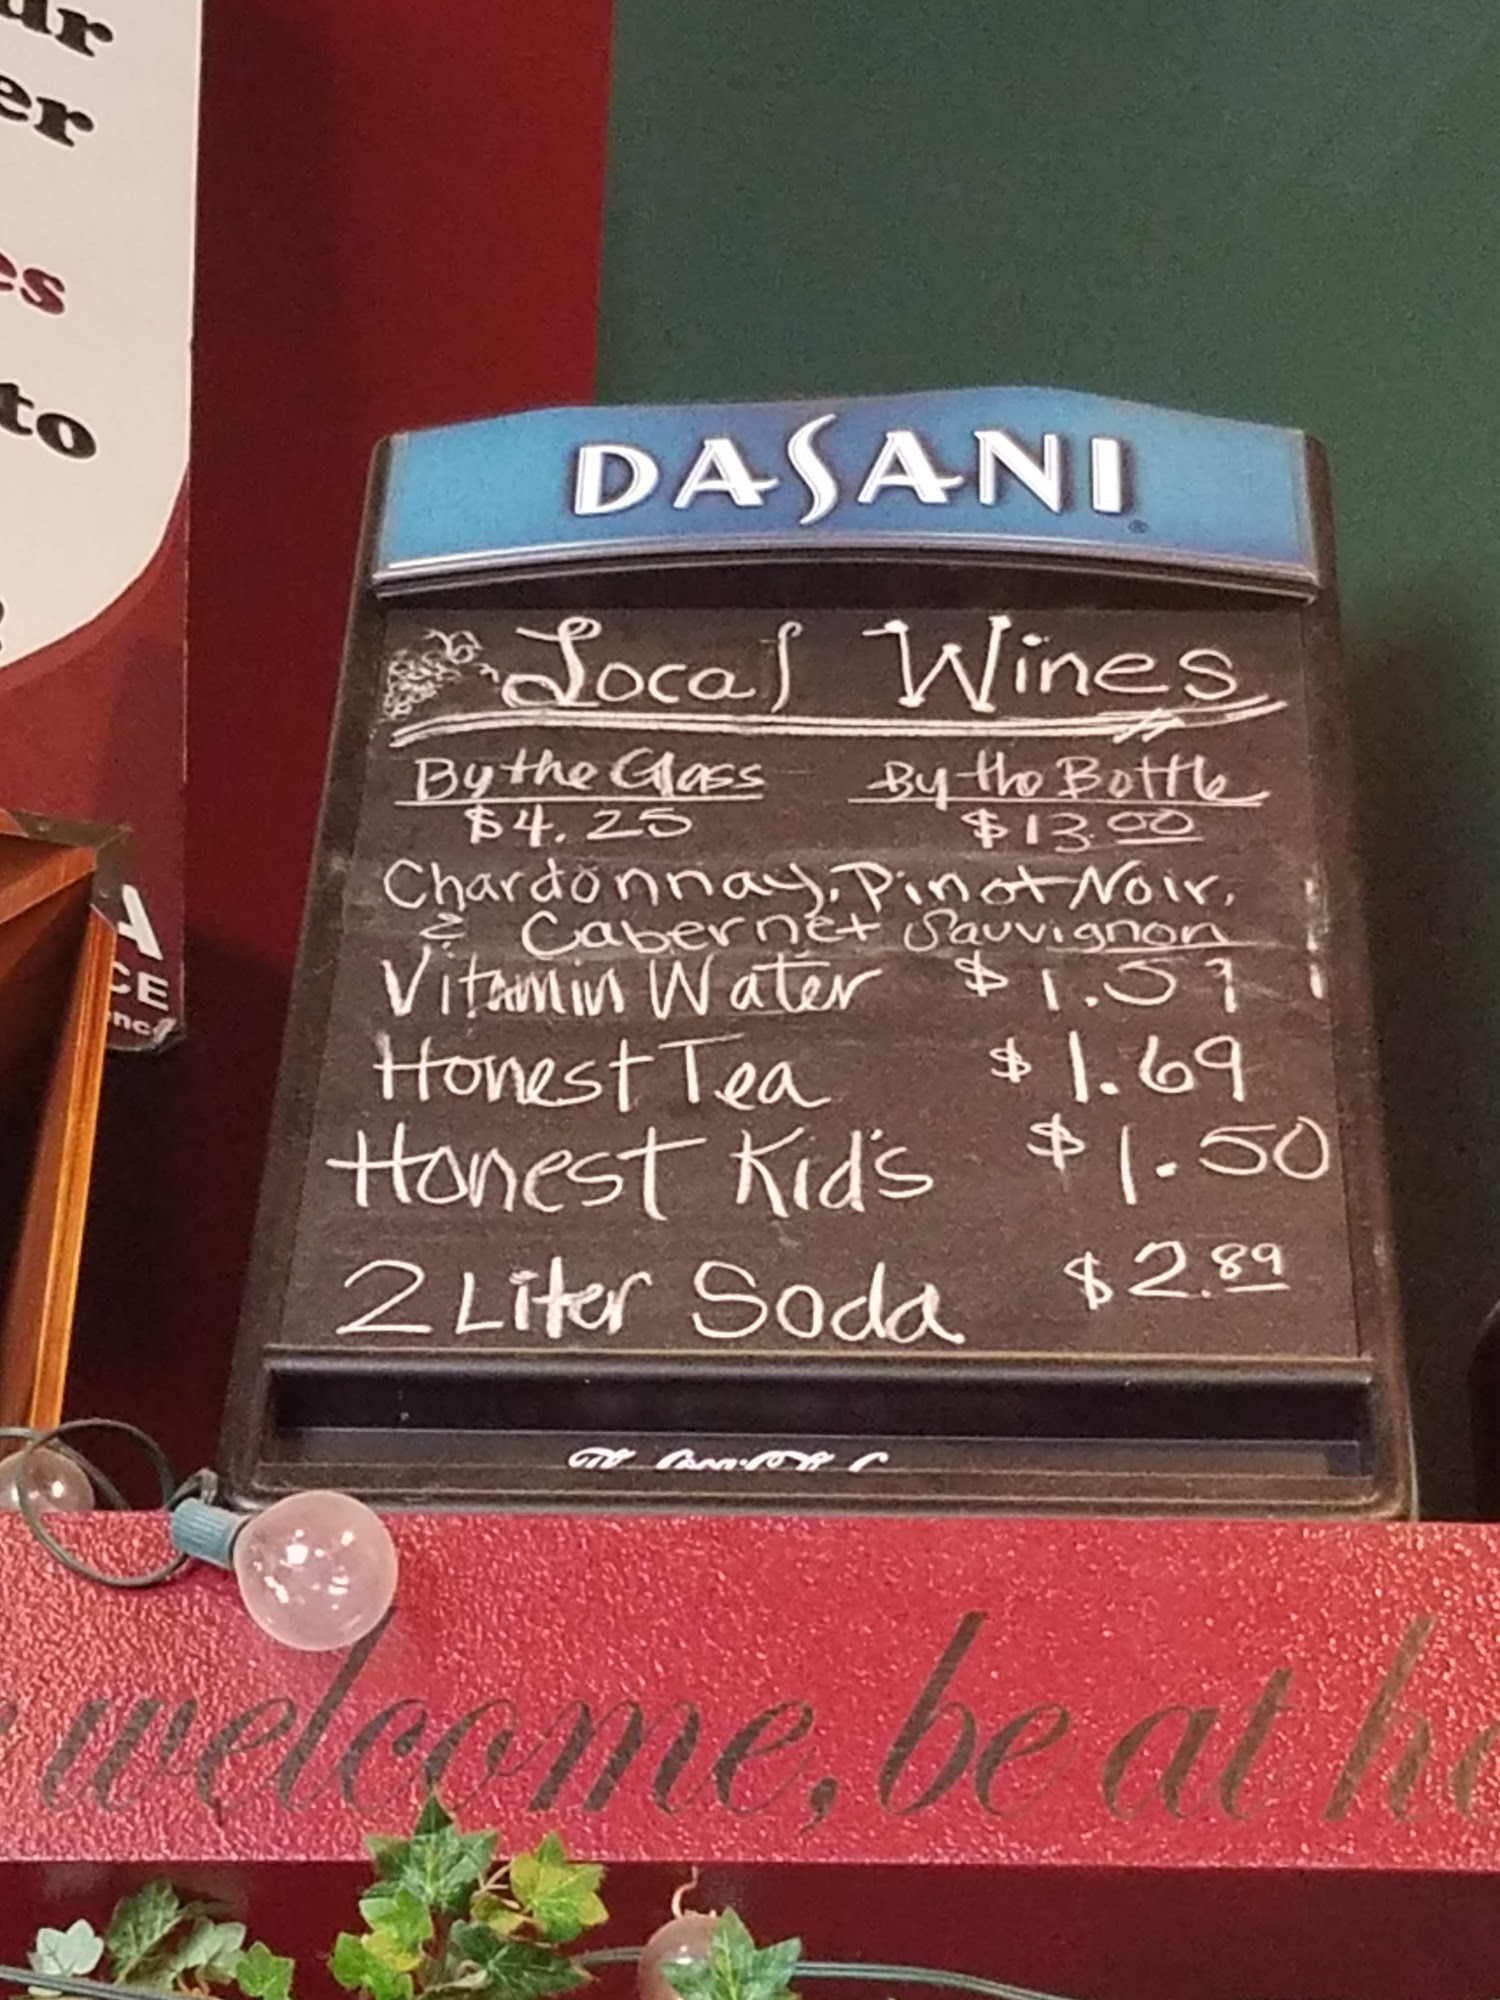 ur
er
es
to
A
CE
DASANI
Local Wines
By the Glass By the Bottle
$4.25 $13.00
Chardonnay, Pinot Noir,
& Cabernet Sauvignon
Vitamin Water $1.59
Honest Tea $1.69
Honest Kid's $1.50
2 Liter Soda $2.89
welcome, be at